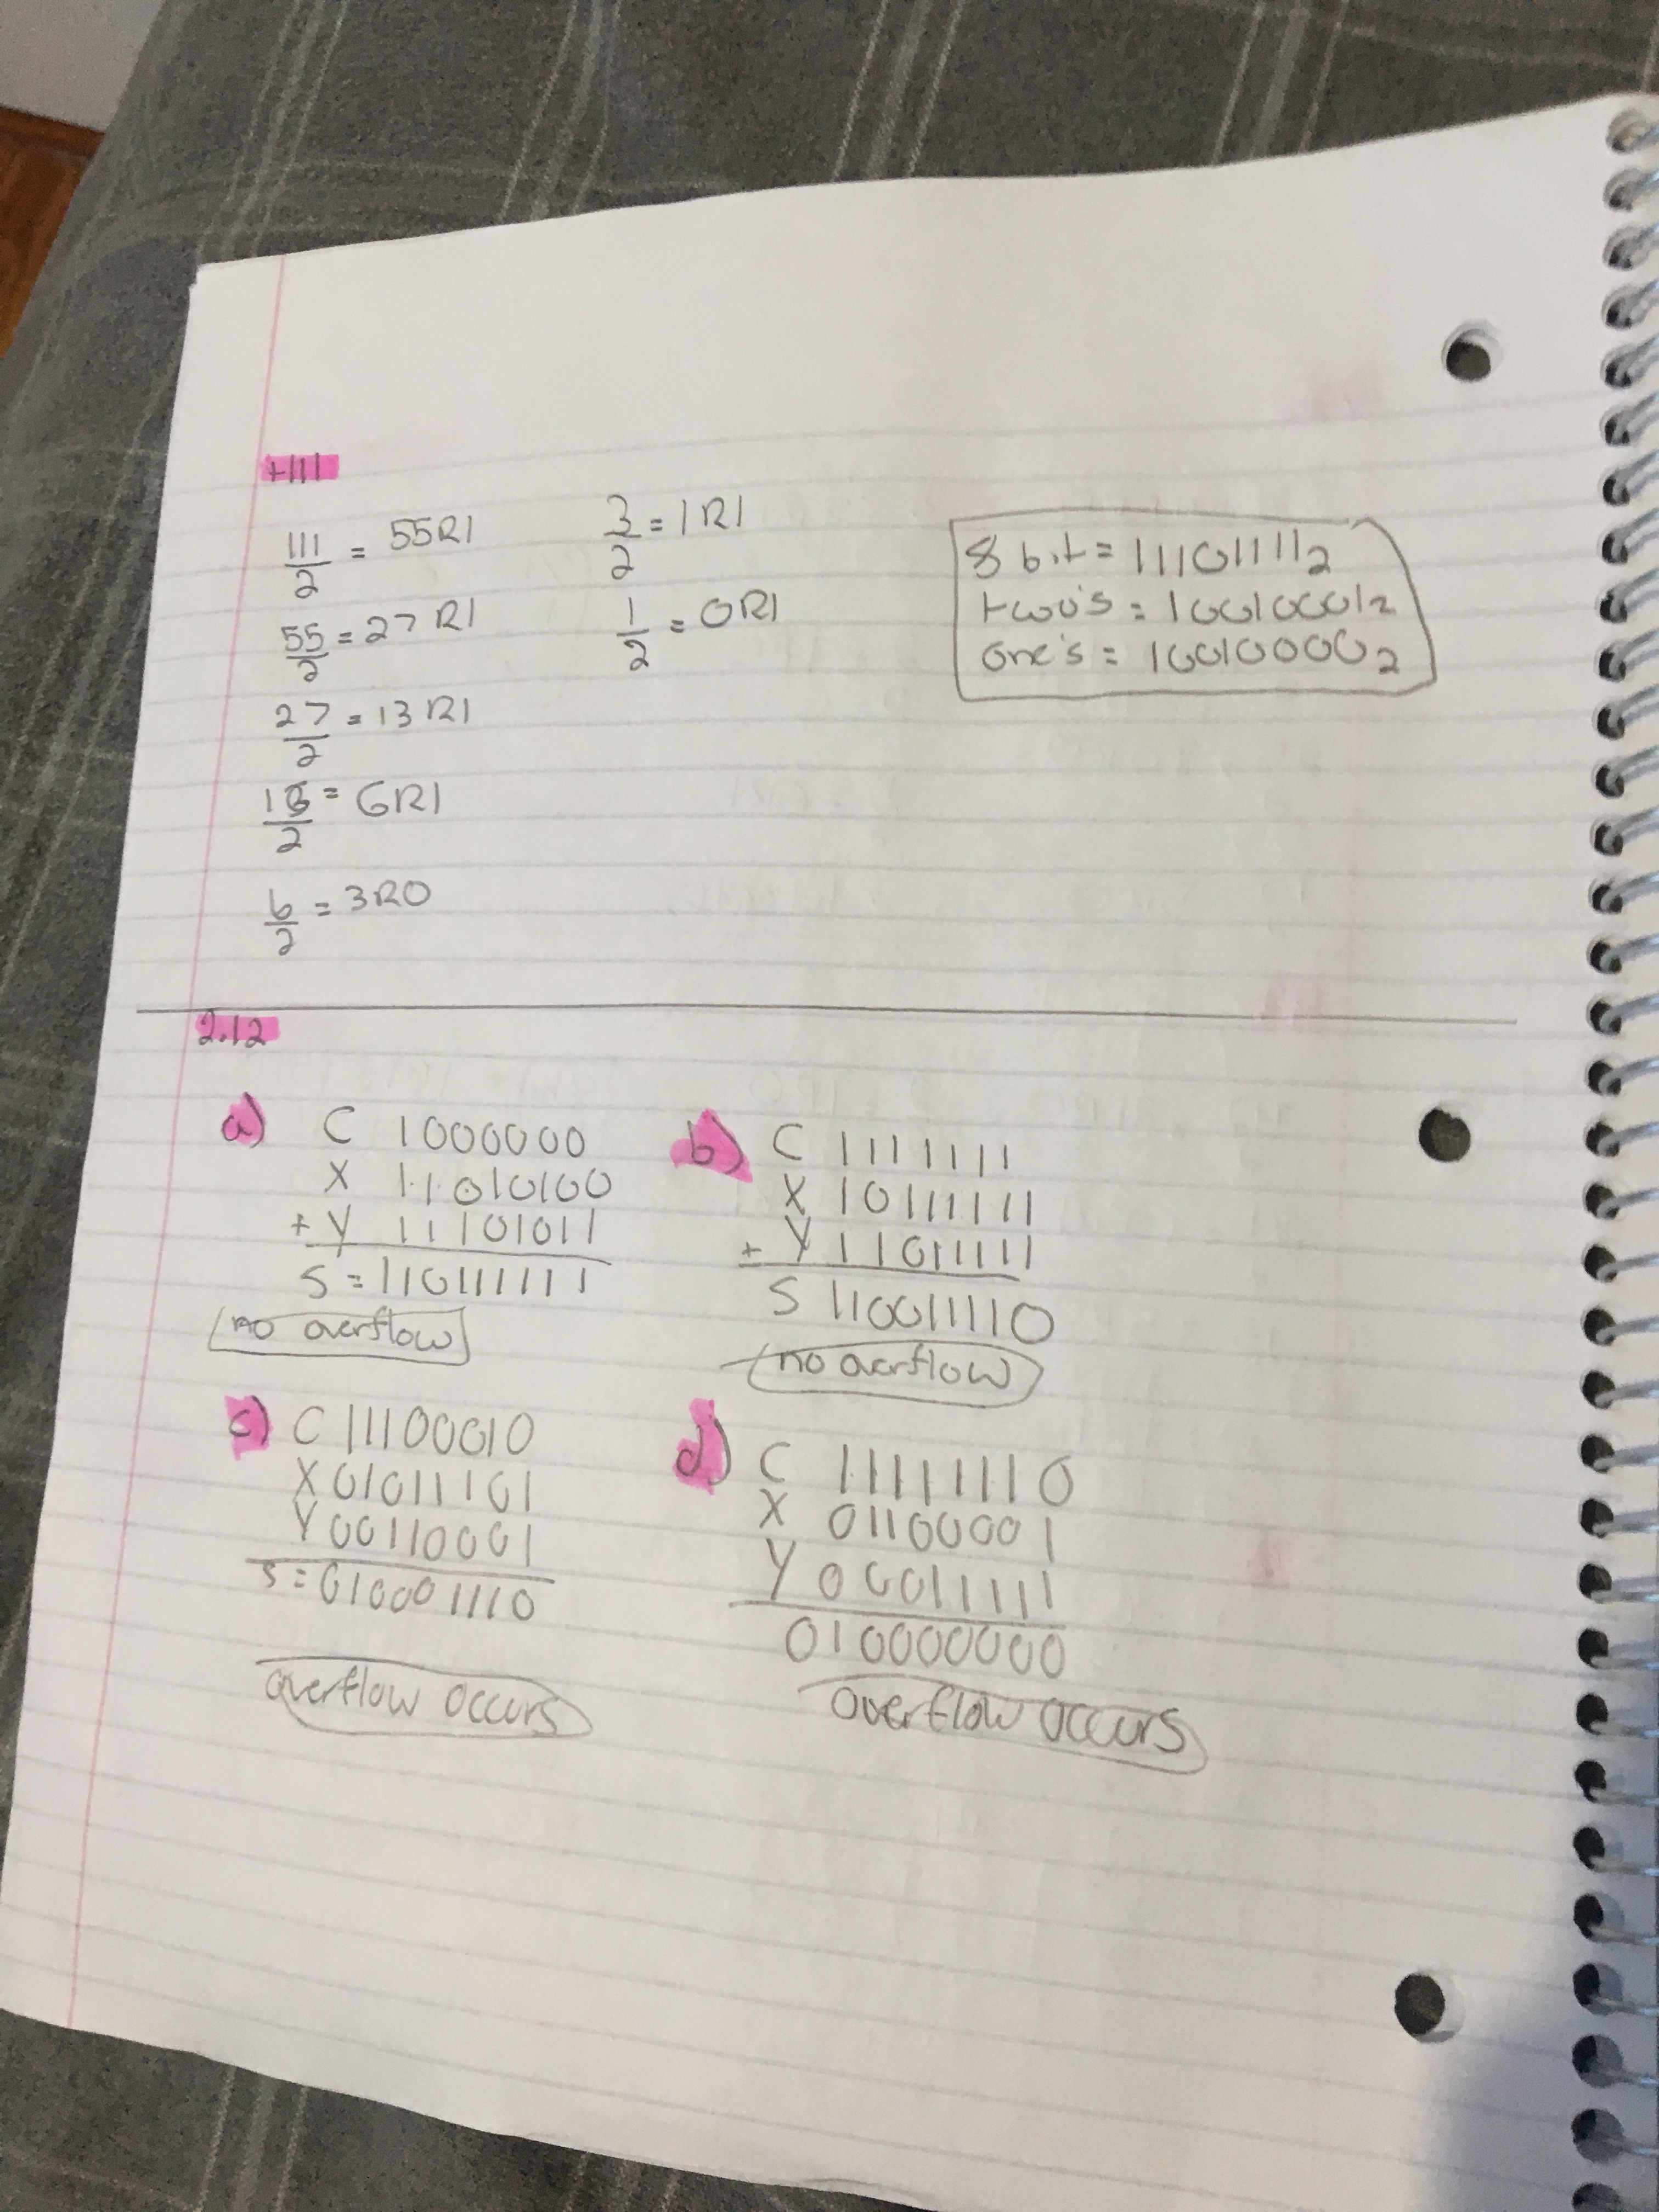 +111
111/2 = 55R1
55/2 = 27R1
27/2 = 13R1
13/2 = 6R1
6/2 = 3R0
3/2 = 1R1
1/2 = 0R1
8 bit = 11101111₂
two's = 10010001₂
one's = 10010000₂
2.12
a) C 1000000
X 11010100
+ Y 11101011
S = 110111111
no overflow
b) C 1111111
X 10111111
+ Y 11011111
S 110011110
no overflow
c) C 11100010
X 01011101
Y 00110001
S = 010001110
overflow occurs
d) C 11111110
X 01100001
Y 00011111
010000000
overflow occurs